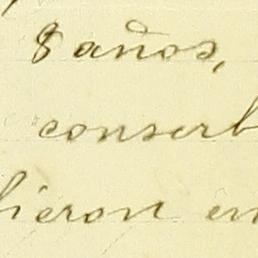 8 años,
conserb
hieron en